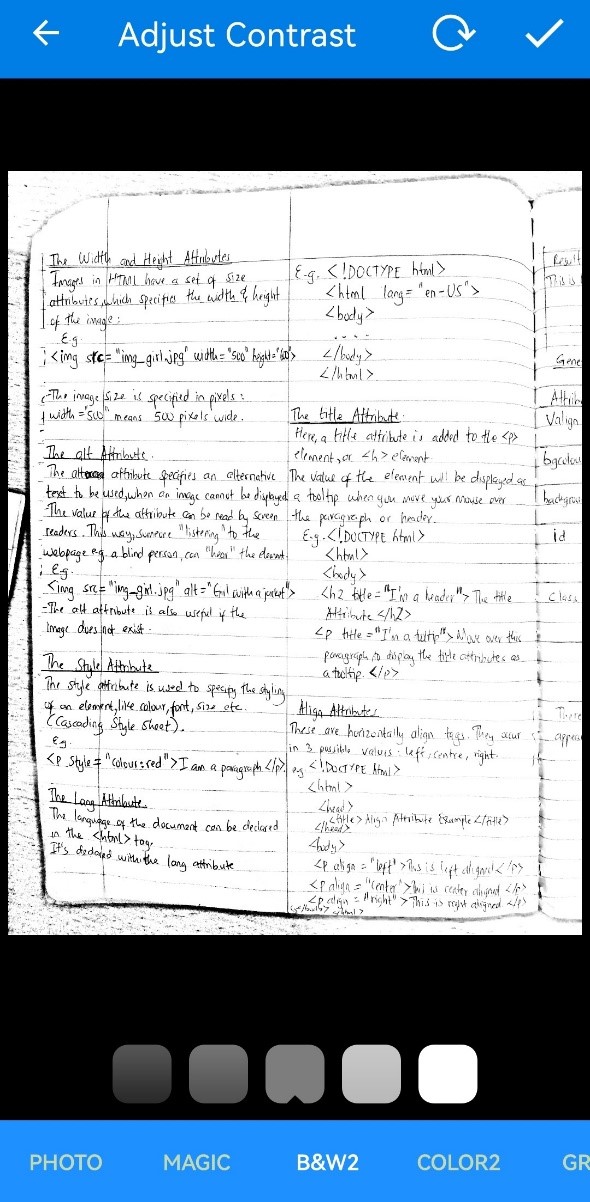 Adjust Contrast
The Width and Height Attributes
Images in HTML have a set of size
attributes, which specifies the width & height
of the image:
Eg.
<img src="img_girl.jpg" width="500" height="600">
-The image size is specified in pixels:
width="500" means 500 pixels wide.
The alt Attribute.
The attribute specifies an alternative
text to be used, when an image cannot be displayed
The value of the attribute can be read by screen
readers. This way, someone "listening" to the
webpage e.g. a blind person, can "hear" the element.
Eg.
<img src="img_girl.jpg" alt="Girl with a jacket">
-The alt attribute is also useful if the
image does not exist.
The Style Attribute
The style attribute is used to specify the styling
of an element, like colour, font, size etc.
(Cascading Style Sheet).
eg.
<p style="colour:red">I am a paragraph</p>
The Lang Attribute
The language of the document can be declared
in the <html> tag.
It's declared with the lang attribute
E.g. <!DOCTYPE html>
<html lang="en-US">
<body>
....
</body>
</html>
The title Attribute.
Here, a title attribute is added to the <p>
element, or <h> element.
The value of the element will be displayed as
a tooltip when you move your mouse over
the paragraph or header.
E.g. <!DOCTYPE html>
<html>
<body>
<h2 title="I'm a header"> The title
Attribute </h2>
<p title="I'm a tooltip"> Move over this
paragraph, to display the title attributes as
a tooltip. </p>
Align Attributes
These are horizontally align tags. They occur
in 3 possible values: left, centre, right.
eg <!DOCTYPE html>
<html>
<head>
<title> Align Attribute Example </title>
</head>
<body>
<p align="left">This is left aligned</p>
<p align="center">This is center aligned </p>
<p align="right">This is right aligned </p>
</body> </html>
Result
This is
Gene
Attrib
Valign
bgcolou
backgrou
id
Class
These
appear
PHOTO MAGIC B&W2 COLOR2 GR